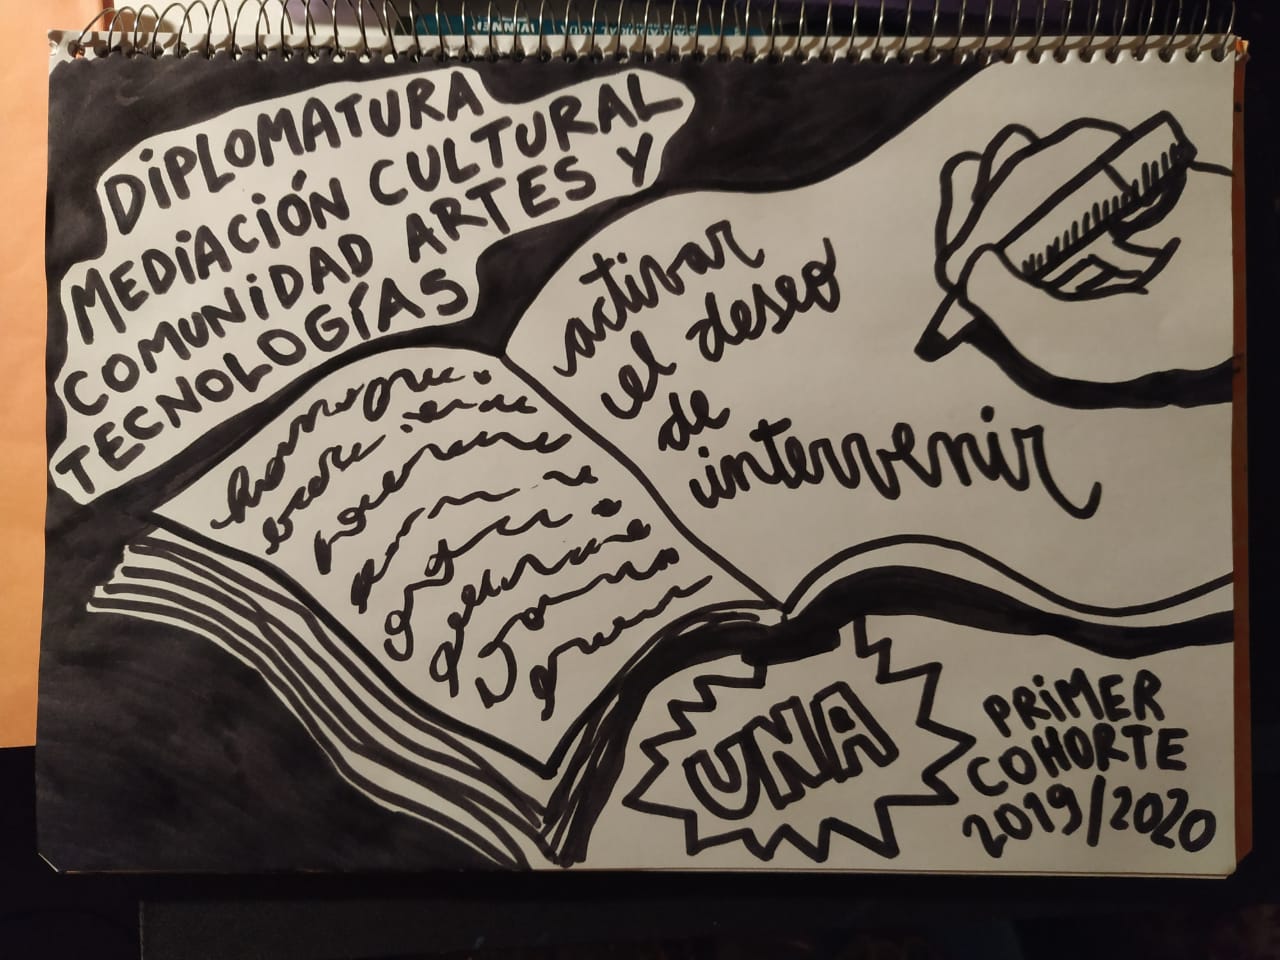 DiPLOMATURA
MEDiACIÓN CULTURAL
COMUNiDAD ARTES Y
TECNOLOGÍAS
activar
el deseo
de
intervenir
UNA
PRiMER
COHORTE
2019/2020